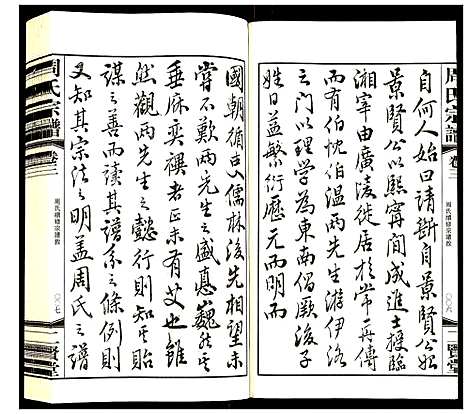 周氏宗譜
卷三
周氏續修宗譜敘
〇〇六
一賢堂
自何人始曰請斷自景賢公始
景賢公以熙寧間成進士授臨
湘宰由廣陵徙居於常再傳
而有伯忱伯溫兩先生游伊洛
之門以理學為東南倡厥後子
姓日益繁衍歷元而明而
國朝循吏儒林後先相望未
嘗不歎兩先生之盛悳巍巍
垂麻奕禩者正未有艾也雖
然觀兩先生之懿行則知其貽
謀之善而讀其譜系之條例則
又知其宗法之明蓋周氏之譜
周氏宗譜
卷三
周氏續修宗譜敘
〇〇七
一賢堂